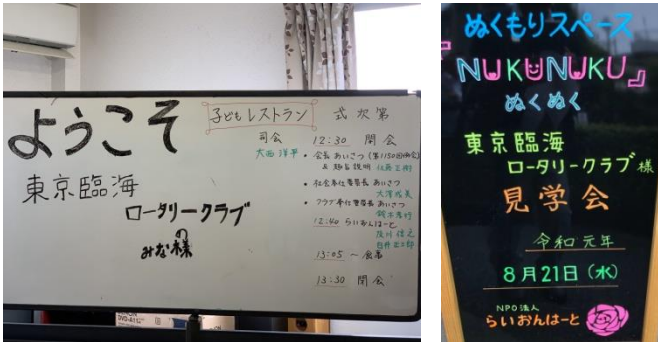 ようこそ
東京臨海
ロータリークラブ
みな様の
子どもレストラン 式次第
司会
大西 洋平
12:30 開会
• 会長 あいさつ (第1150回例会)
& 趣旨説明 佐藤 正樹
• 社会奉仕委員長 あいさつ
大澤 成美
• クラブ奉仕委員長 あいさつ
鈴木 孝行
12:40 らいおんはーと
及川 信之
13:05 〜 会食
13:30 閉会
ぬくもりスペース
『NUKUNUKU』
ぬくぬく
東京臨海
ロータリークラブ様
見学会
令和元年
8月21日(水)
NPO法人
らいおんはーと